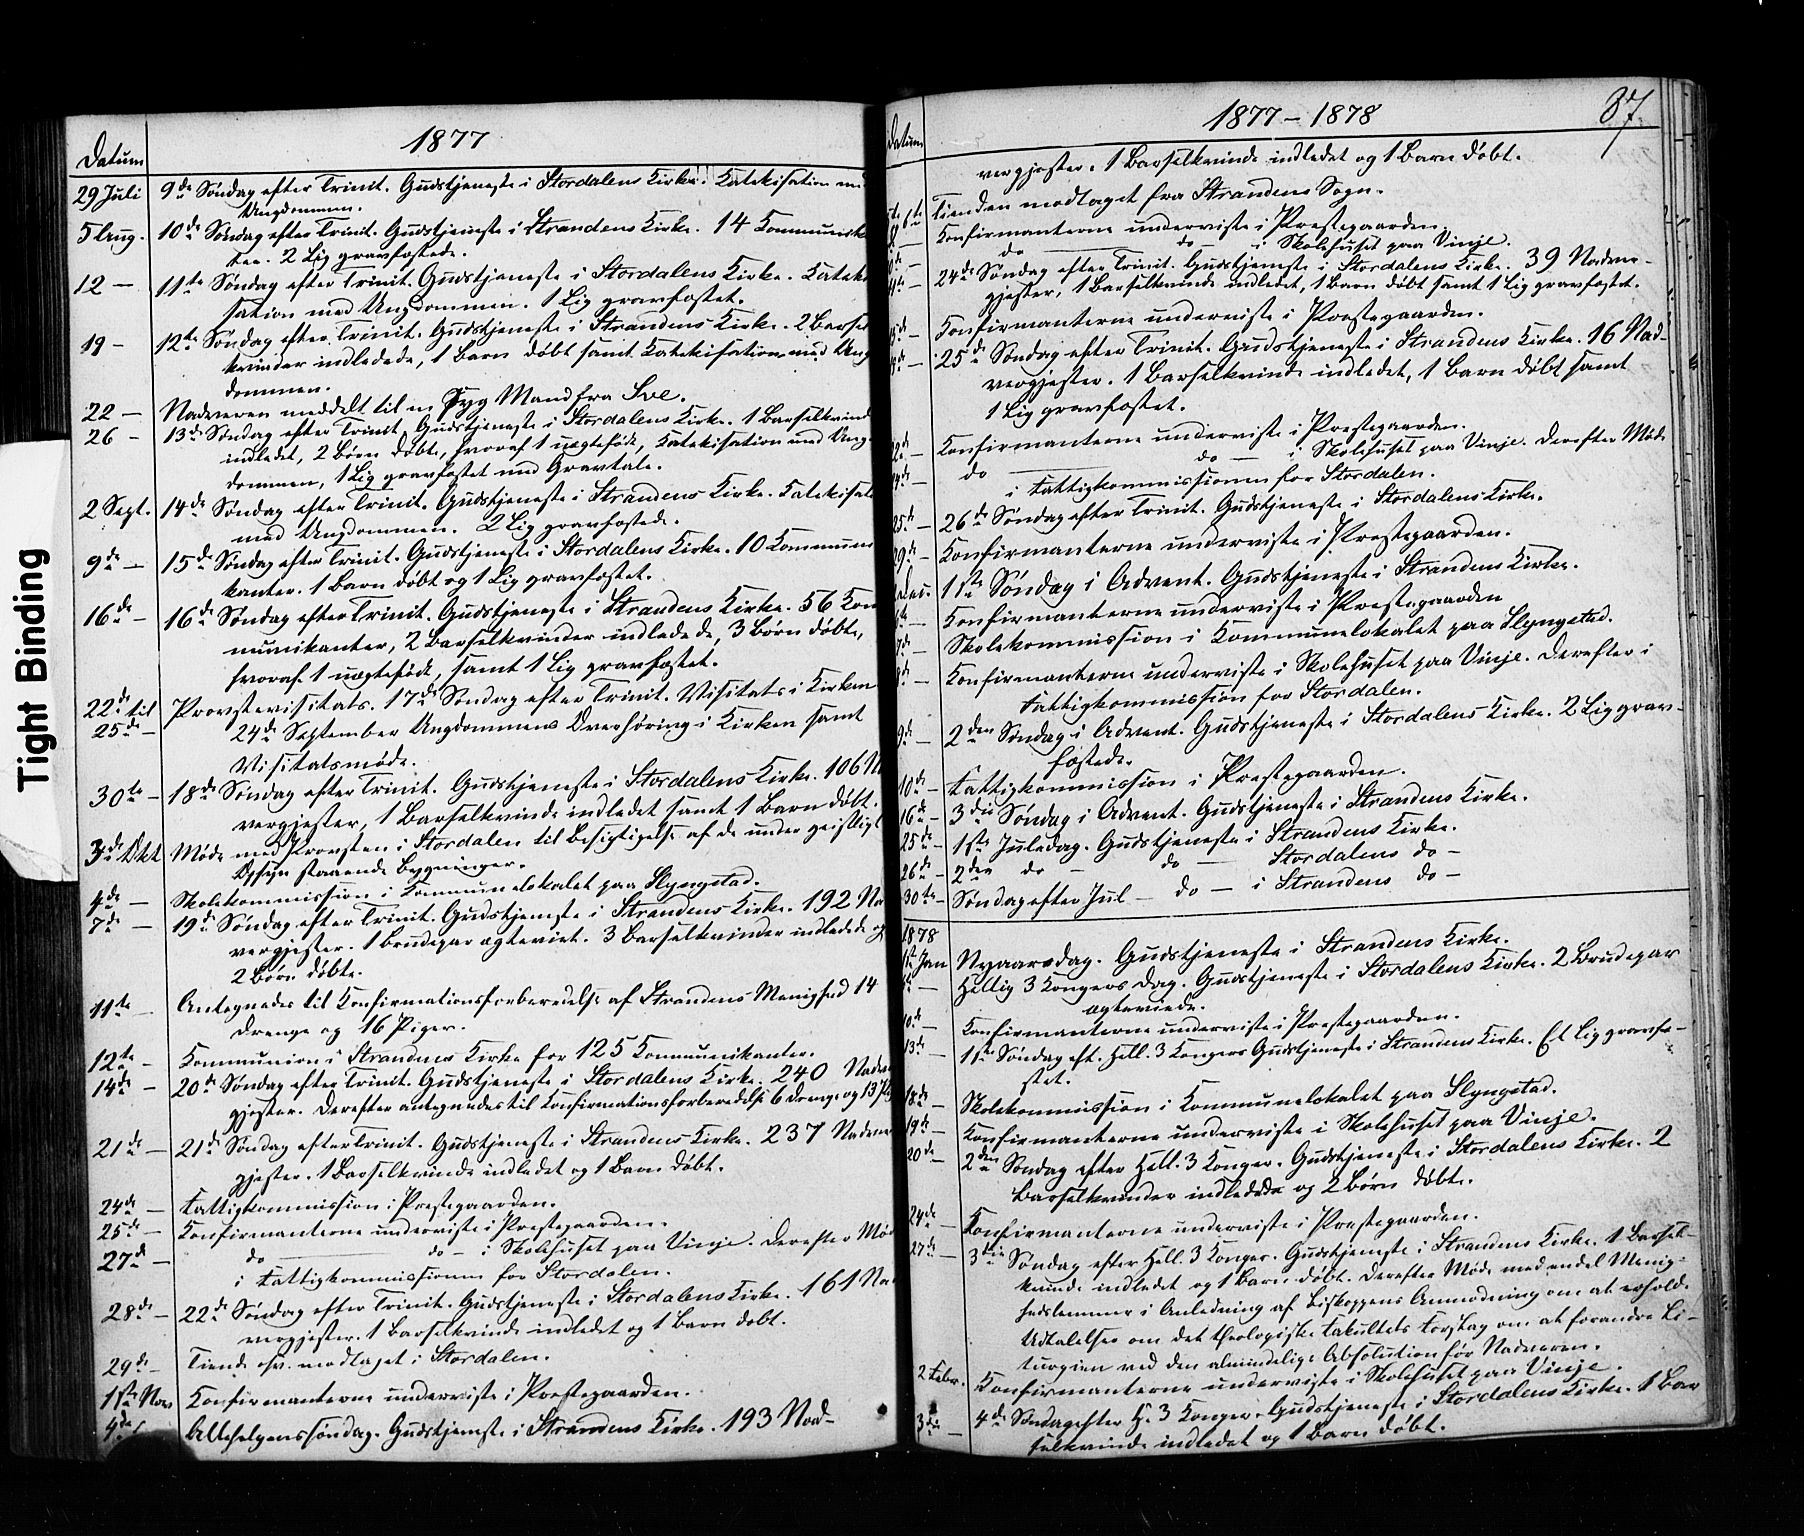 Tight Binding
Datum
1877
29 Juli 9de Søndag efter Trinit. Gudstjeneste i Stordalens Kirke. Katekisation med
Ungdommen.
5 Aug. 10de Søndag efter Trinit. Gudstjeneste i Strandens Kirke. 14 Kommunikan
ter. 2 Lig gravfæstede.
12 — 11te Søndag efter Trinit. Gudstjeneste i Stordalens Kirke. Kateki
sation med Ungdommen. 1 Lig gravfæstet.
19 – 12te Søndag efter Trinit. Gudstjeneste i Strandens Kirke. 2 Barsel
kvinder indledede, 1 Barn døbt samt Katekisation med Ung
dommen.
22 — Nadveren meddelt til en syg Mand fra Sve.
26 – 13de Søndag efter Trinit. Gudstjeneste i Stordalens Kirke. 1 Barselkvinde
indledet, 2 Børn døbte, hvoraf 1 uægtefødt, Katekisation med Ung-
dommen, 1 Lig gravfæstet med Gravtale.
2 Sept. 14de Søndag efter Trinit. Gudstjeneste i Strandens Kirke. Katekisati
med Ungdommen. 2 Lig gravfæstede.
9de — 15de Søndag efter Trinit. Gudstjeneste i Stordalens Kirke. 10 Kommuni
kanter. 1 Barn døbt og 1 Lig gravfæstet.
16de — 16de Søndag efter Trinit. Gudstjeneste i Strandens Kirke. 56 Kom
munikanter, 2 Barselkvinder indledede, 3 Børn døbte,
hvoraf 1 uægtefødt, samt 1 Lig gravfæstet.
22de til Provstevisitats. 17de Søndag efter Trinit. Visitats i Kirken
25de – 24de September Ungdommens Overhøring i Kirken samt
Visitatsmøde.
30te – 18de Søndag efter Trinit. Gudstjeneste i Stordalens Kirke. 106 N
vergjester, 1 Barselkvinde indledet samt 1 Barn døbt.
3de Okt Møde med Provsten i Stordalen til Besigtigelse af de under geistligt
Opsyn staaende Bygninger.
4de — Skolekommission i Kommunelokalet paa Slyngstad.
7de — 19de Søndag efter Trinit. Gudstjeneste i Strandens Kirke. 192 Na
vergjester. 1 Brudepar ægteviet. 3 Barselkvinder indledede og
2 Børn døbte.
11te — Antegnedes til Konfirmationsforberedelse af Strandens Menighed 14
Drenge og 16 Piger.
12te – Kommunion i Strandens Kirke for 125 Kommunikanter.
14de – 20de Søndag efter Trinit. Gudstjeneste i Stordalens Kirke. 240 Nadver
gjester. Derefter antegnedes til Konfirmationsforberedelse 6 Drenge og 13 Pi
21de — 21de Søndag efter Trinit. Gudstjeneste i Strandens Kirke. 237 Nadver
gjester. 1 Barselkvinde indledet og 1 Barn døbt.
24de — Fattigkommission i Prestegaarden.
25de — Konfirmanterne underviste i Prestegaarden.
27de — do — do – i Skolehuset paa Vinje. Derefter Møde
i Fattigkommissionen for Stordalen.
28de — 22de Søndag efter Trinit. Gudstjeneste i Stordalens Kirke. 161 Na
vergjester. 1 Barselkvinde indledet og 1 Barn døbt.
29de – Tiende osv. modtaget i Stordalen.
1ste Nov Konfirmanterne underviste i Prestegaarden.
4de Allehelgenssøndag. Gudstjeneste i Strandens Kirke. 193 Nad-
Datum
1877 – 1878
87
vergjester. 1 Barselkvinde indledet og 1 Barn døbt.
6te Tienden modtaget fra Strandens Sogn.
Konfirmanterne underviste i Prestegaarden.
do — do – i Skolehuset paa Vinje.
24de Søndag efter Trinit. Gudstjeneste i Stordalens Kirke. 39 Nadver-
gjester, 1 Barselkvinde indledet, 1 Barn døbt samt 1 Lig gravfæstet.
Konfirmanterne underviste i Prestegaarden.
25de Søndag efter Trinit. Gudstjeneste i Strandens Kirke. 16 Nad-
vergjester. 1 Barselkvinde indledet, 1 Barn døbt samt
1 Lig gravfæstet.
22de — Konfirmanterne underviste i Prestegaarden.
24de – do — do — i Skolehuset paa Vinje. Derefter Møde
i Fattigkommissionen for Stordalen.
25de – 26de Søndag efter Trinit. Gudstjeneste i Stordalens Kirke.
29de – Konfirmanterne underviste i Prestegaarden.
1ste Søndag i Advent. Gudstjeneste i Strandens Kirke.
Konfirmanterne underviste i Prestegaarden
7de – Skolekommission i Kommunelokalet paa Slyngstad.
8de – Konfirmanterne underviste i Skolehuset paa Vinje. Derefter i
Fattigkommission for Stordalen.
9de — 2den Søndag i Advent. Gudstjeneste i Stordalens Kirke. 2 Lig grav-
fæstede.
10de – Fattigkommission i Prestegaarden.
16de – 3die Søndag i Advent. Gudstjeneste i Strandens Kirke.
25de – 1ste Juledag. Gudstjeneste i Strandens Kirke.
26de – 2den do – do — Stordalens do –
30te – Søndag efter Jul – do – i Strandens do –
1878
1ste Jan Nyaarsdag. Gudstjeneste i Strandens Kirke.
Hellig 3 Kongers Dag. Gudstjeneste i Stordalens Kirke. 2 Brudepar
ægteviede.
10de – Konfirmanterne underviste i Prestegaarden.
13de – 1ste Søndag eft. Hell. 3 Konger Gudstjeneste i Strandens Kirke. Et Lig gravfæ-
stet.
18de – Skolekommission i Kommunelokalet paa Slyngstad.
19de – Konfirmanterne underviste i Skolehuset paa Vinje.
20de – 2den Søndag efter Hell. 3 Konger. Gudstjeneste i Stordalens Kirke. 2
Barselkvinder indledede og 2 Børn døbte.
24de – Konfirmanterne underviste i Prestegaarden.
27de – 3die Søndag efter Hell. 3 Konger. Gudstjeneste i Strandens Kirke. 1 Barsel-
kvinde indledet og 1 Barn døbt. Derefter Møde med endel Menig-
hedslemmer i Anledning af Biskoppens Anmodning om at erholde
Udtalelser om det theologiske Fakultets Forslag om at forandre Li-
turgien ved den almindelige Absolution før Nadveren.
2 Febr. Konfirmanterne underviste i Skolehuset paa Vinje.
3de – 4de Søndag efter H. 3 Konger. Gudstjeneste i Stordalens Kirke. 1 Bar
selkvinde indledet og 1 Barn døbt.